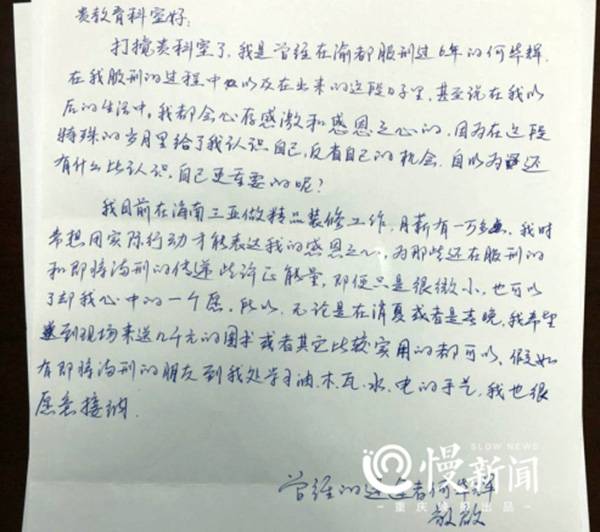 贵教育科室好:
打搅贵科室了,我是曾经在渝都服刑过6年的何华辉,
在我服刑的过程中以及在出来的这段日子里,甚至说在我以
后的生活中,我都会心存感激和感恩之心的,因为在这段
特殊的岁月里给了我认识自己,反省自己的机会,自以为还
有什么比认识自己更重要的呢?
我目前在海南三亚做精品装修工作,月薪有一万多,我时
常想用实际行动才能表达我的感恩之心,为那些还在服刑的
和即将满刑的传递些许正能量,即便只是很微小,也可以
了却我心中的一个愿,所以,无论是在消夏或者是春晚,我希望
到现场来送几千元的图书或者其它比较实用的都可以,假如
有即将满刑的朋友到我处学习油、木、瓦、水、电的手艺,我也很
愿意接纳.
SLOW NEWS
慢新闻
重庆晚报出品
曾经的迷途者何华辉
敬启